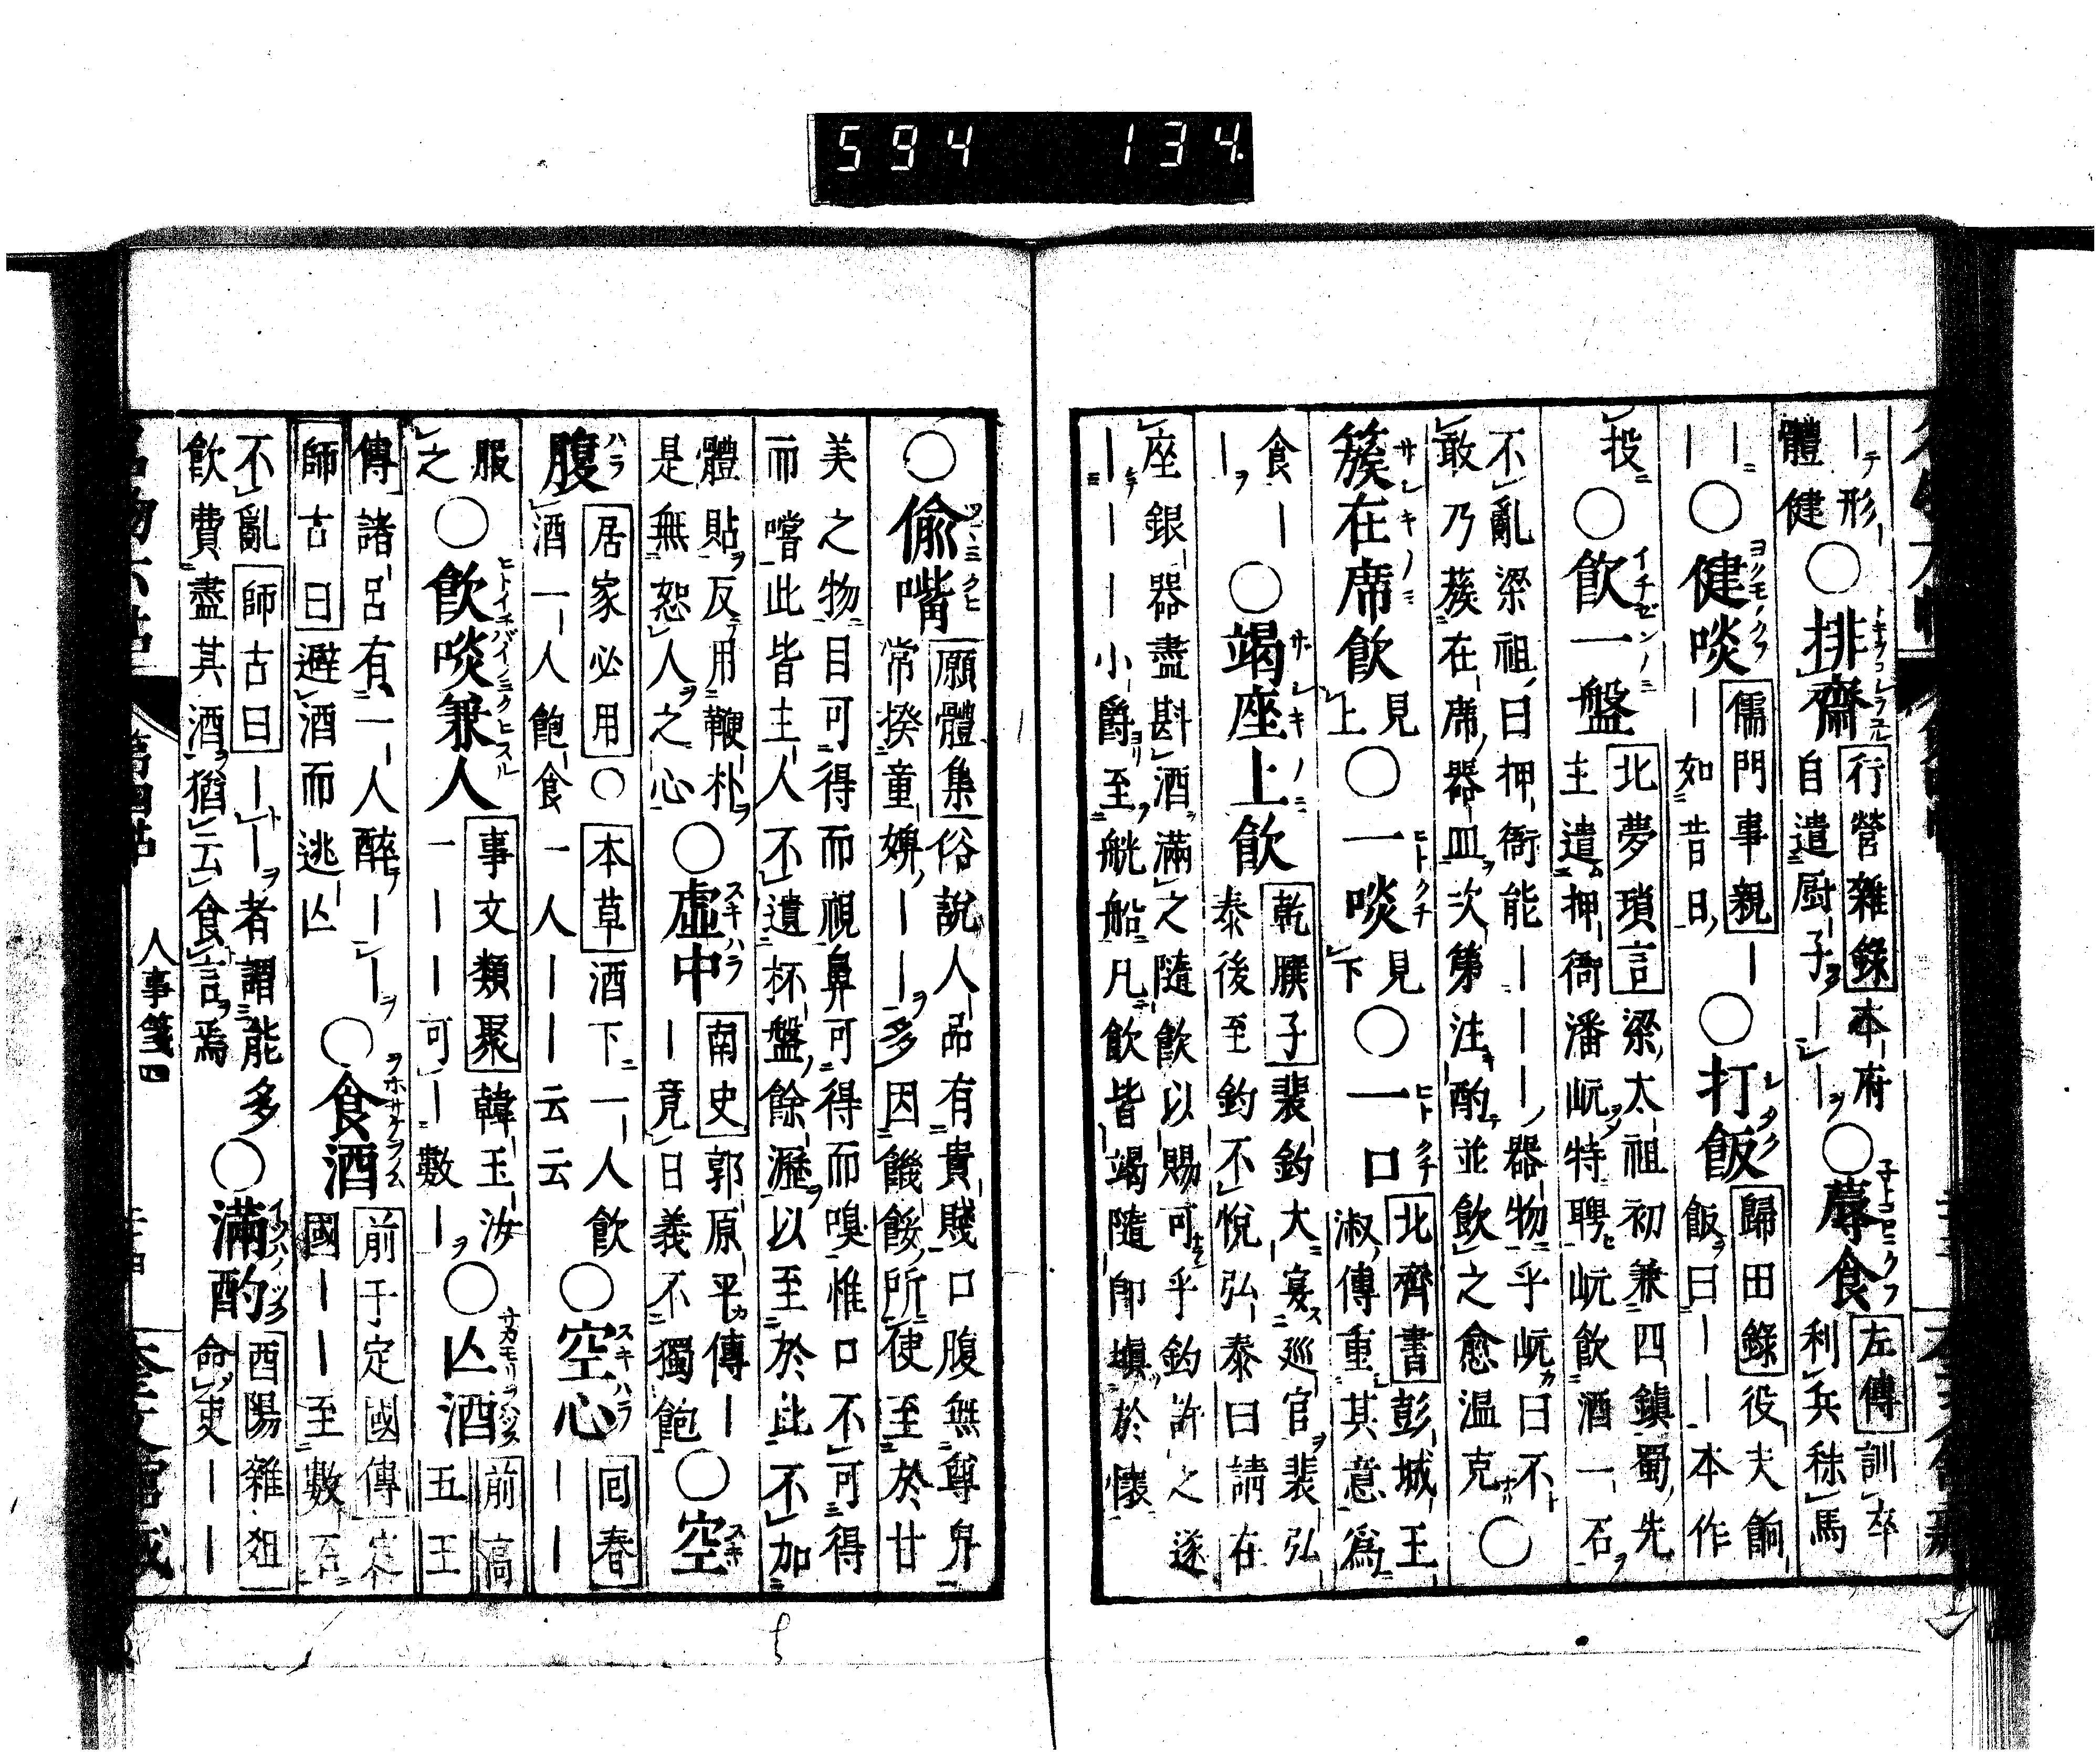 594 134
ー形
體健
○排齋 行營雜錄 本府
自遣厨子ーー
○蓐食 左傳 訓卒
利兵秣馬
ー
ー
○健啖 儒門事親 ー
ー如昔日
○打飯 歸田錄 役夫餉
飯曰ーー本作
投
○飲一盤 北夢瑣言 梁太祖初兼四鎮蜀先
主遣押衙潘峴特聘峴飲酒一石
不亂梁祖曰押衙能ーーー器物乎峴曰不
敢乃蔟在席器皿次第注酌並飲之愈温克
○簇在席飲 見
上
○一啖 見
下
○一口 北齊書 彭城王
淑傳重其意爲
食ー
ー
○竭座上飲 乾𦠆子 裴鈞大宴巡官裴弘
泰後至鈞不悅弘泰曰請在
座銀器盡斟酒滿之隨飲以賜可乎鈞許之遂
ーーー小爵至觥船凡飲皆竭隨卽塡於懷
○偷嘴 願體集 俗說人品有貴賤口腹無尊卑
常揆童婢ーー多因饑餒所使至於甘
美之物目可得而視鼻可得而嗅惟口不可得
而嚐此皆主人不遺杯盤餘瀝以至於此不加
體貼反用鞭朴
是無恕人之心
○虛中 南史 郭原平傳ー
ー竟日義不獨飽
○空腹 居家必用 ○ 本草 酒下一人飲
酒一人飽食一人ーー云云
○空心 回春
ーー
服
之
○飲啖兼人 事文類聚 韓玉汝
一ーー可ー數ー
○亾酒 前高
五王
傳 諸呂有一人醉ーー
師古曰 避酒而逃亾
○食酒 前于定國傳 定
國ーー至數石
不亂 師古曰 ーー者謂能多
飲費盡其酒猶云食言焉
○滿酌 酉陽雜俎
命吏ーー
人事箋四